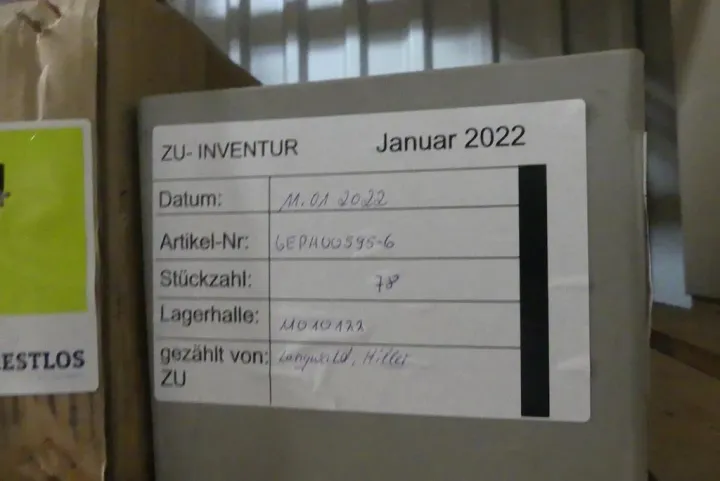 ZU- INVENTUR Januar 2022
Datum: 11.01 2022
Artikel-Nr: 6EPH00595-6
Stückzahl: 78
Lagerhalle: M010122
gezählt von: Langwald, Hiller
ZU
ESTLOS